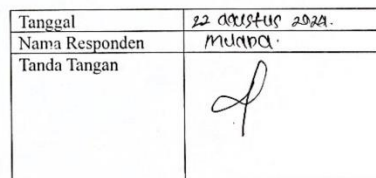 Tanggal 22 agustus 2024.
Nama Responden
Tanda Tangan